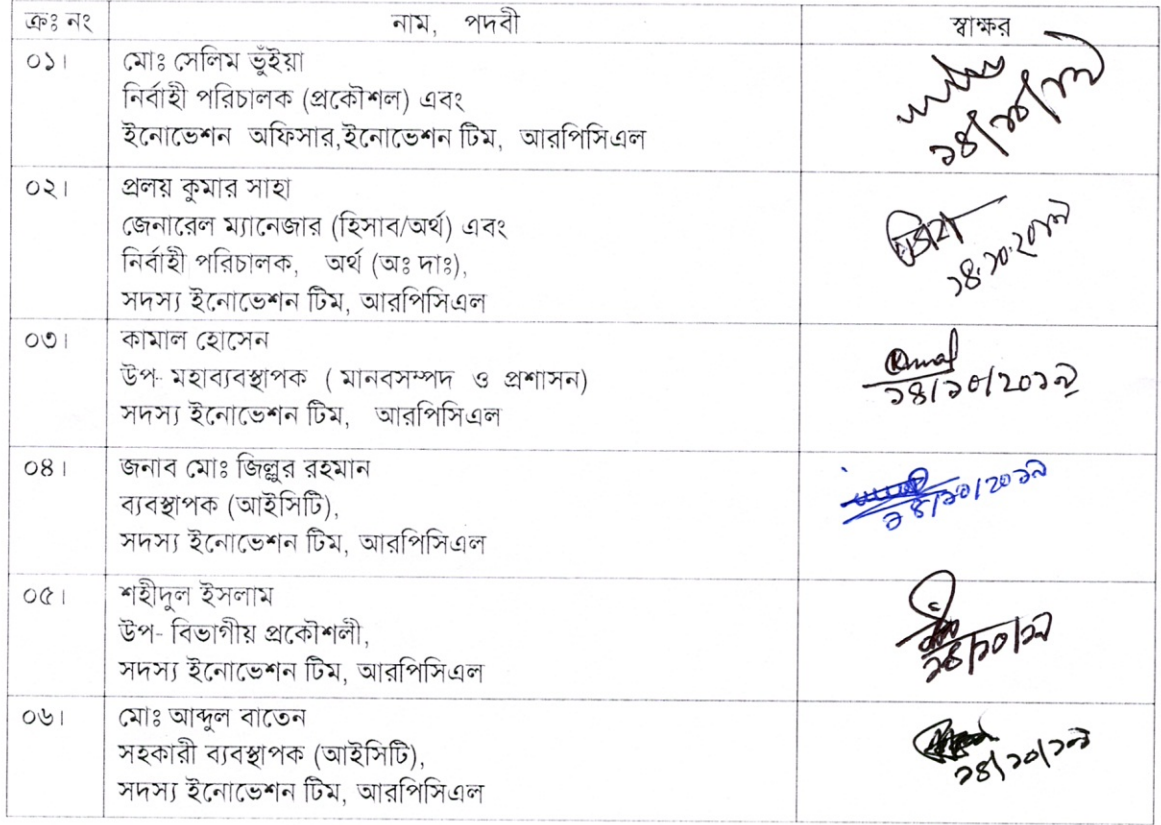 ক্রঃ নং নাম, পদবী স্বাক্ষর
০১। মোঃ সেলিম ভুঁইয়া
নির্বাহী পরিচালক (প্রকৌশল) এবং
ইনোভেশন অফিসার,ইনোভেশন টিম, আরপিসিএল
১৪/১০/১৯
০২। প্রলয় কুমার সাহা
জেনারেল ম্যানেজার (হিসাব/অর্থ) এবং
নির্বাহী পরিচালক, অর্থ (অঃ দাঃ),
সদস্য ইনোভেশন টিম, আরপিসিএল
১৪.১০.২০১৯
০৩। কামাল হোসেন
উপ- মহাব্যবস্থাপক ( মানবসম্পদ ও প্রশাসন)
সদস্য ইনোভেশন টিম, আরপিসিএল
১৪/১০/২০১৯
০৪। জনাব মোঃ জিল্লুর রহমান
ব্যবস্থাপক (আইসিটি),
সদস্য ইনোভেশন টিম, আরপিসিএল
১৪/১০/২০১৯
০৫। শহীদুল ইসলাম
উপ- বিভাগীয় প্রকৌশলী,
সদস্য ইনোভেশন টিম, আরপিসিএল
১৪/১০/১৯
০৬। মোঃ আব্দুল বাতেন
সহকারী ব্যবস্থাপক (আইসিটি),
সদস্য ইনোভেশন টিম, আরপিসিএল
১৪/১০/১৯